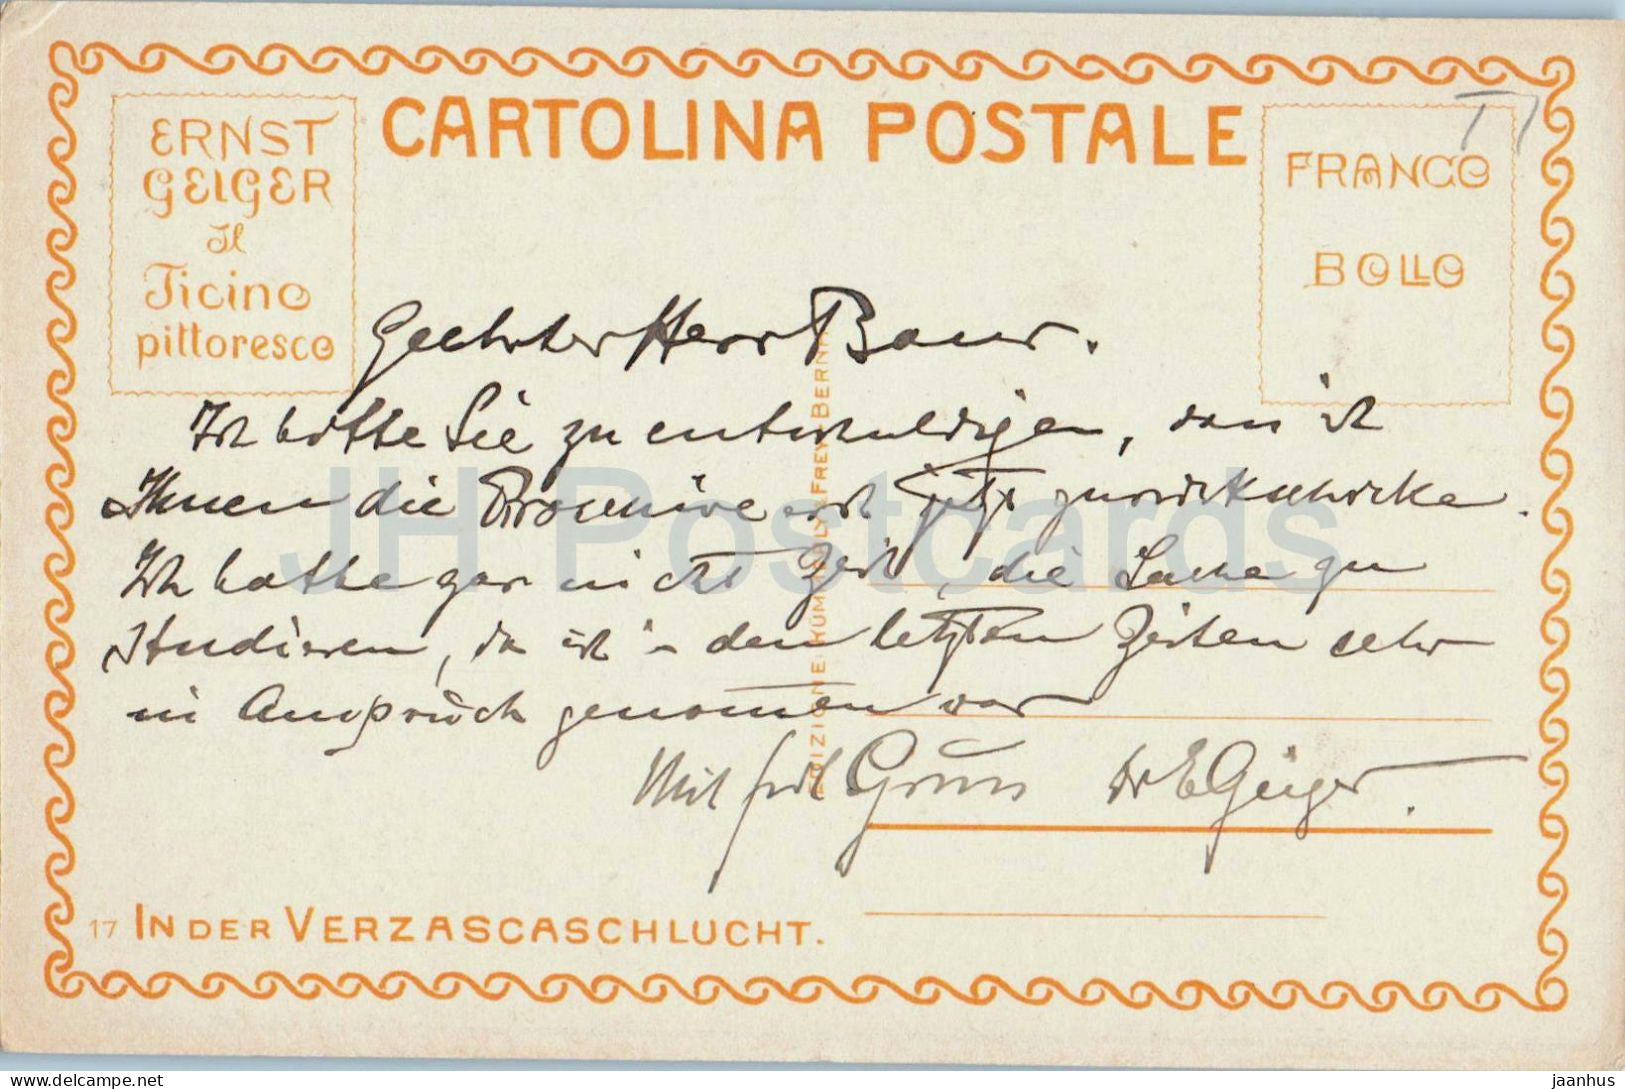 CARTOLINA POSTALE
ERNST
GEIGER
Il
Ticino
pittoresco
FRANCO
BOLLO
Geehrter Herr Baur.
Ich bitte Sie zu entschuldigen, dass ich
Ihnen die Broschüre erst jetzt zurückschicke.
Ich hatte gar nicht Zeit, die Sache zu
studieren, da ich in den letzten Zeiten sehr
in Anspruch genommen war
Mit frdl Gruss Dr E Geiger.
17 IN DER VERZASCASCHLUCHT.
JH Postcards
jaanhus
delcampe.net